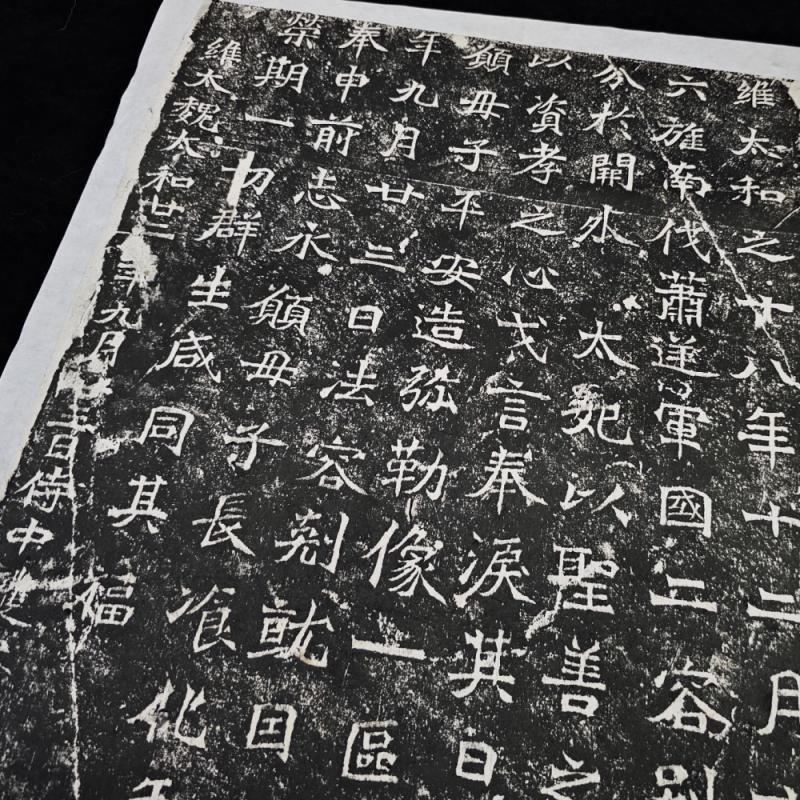 維太和之十八年十二月十
六旌南伐蕭逆軍國二容別
分於開外太妃以聖善之
以資孝之心戈言奉淚其日
願母子平安造弥勒像一區
年九月廿三日法容剋就因
奉申前志永願母子長飡化年
榮期一切群生咸同其福
維太魏太和廿二年九月廿三日侍中護